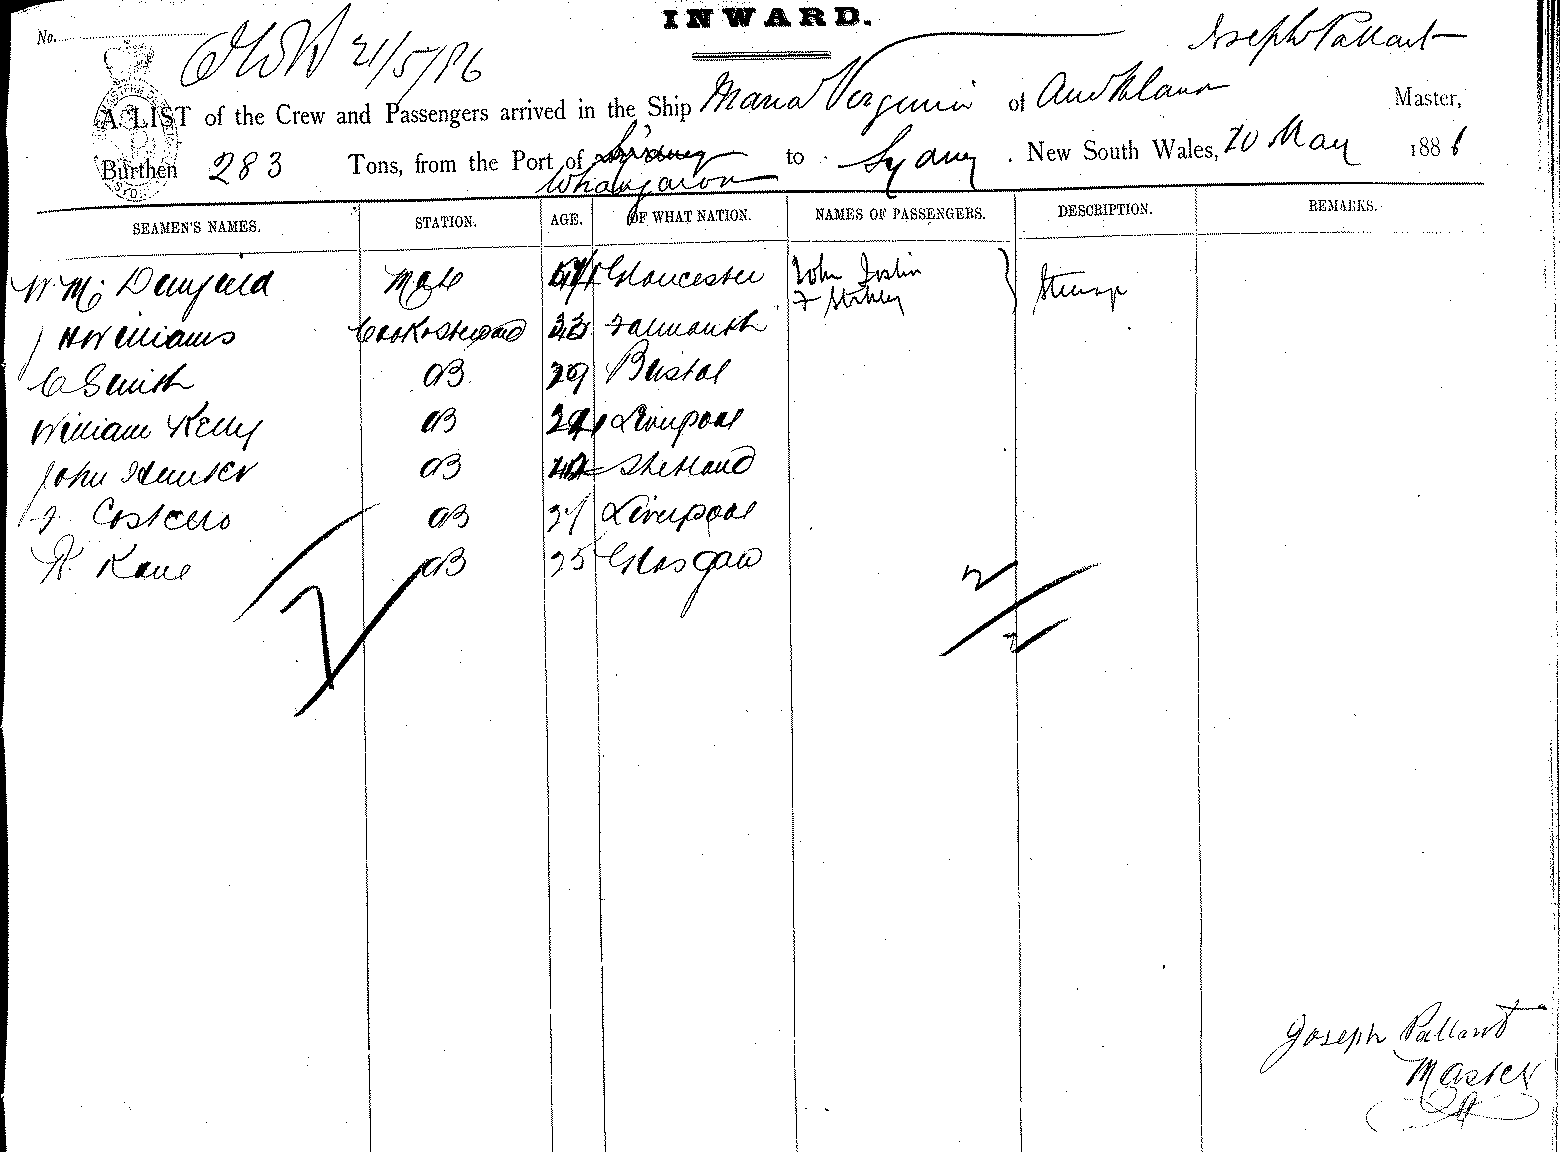 INWARD.
No.
21/5/86
Joseph Pallant
A LIST of the Crew and Passengers arrived in the Ship Maria Verginia of Auckland Master,
Burthen 283 Tons, from the Port of Sydney to Sydney. New South Wales, 20 May 1886
Whangaroa
SEAMEN'S NAMES. STATION. AGE. OF WHAT NATION. NAMES OF PASSENGERS. DESCRIPTION. REMARKS.
Wm Mate Gloucester John Joslin
F
J H Williams Cook & Steward 33 Falmouth
C Smith AB 29 Bristol
William Kelly AB Liverpool
John Hunter AB Shetland
F Costello AB 27 Liverpool
W. Kane AB 25 Glasgow
7
2
2
Joseph Pallant
Master